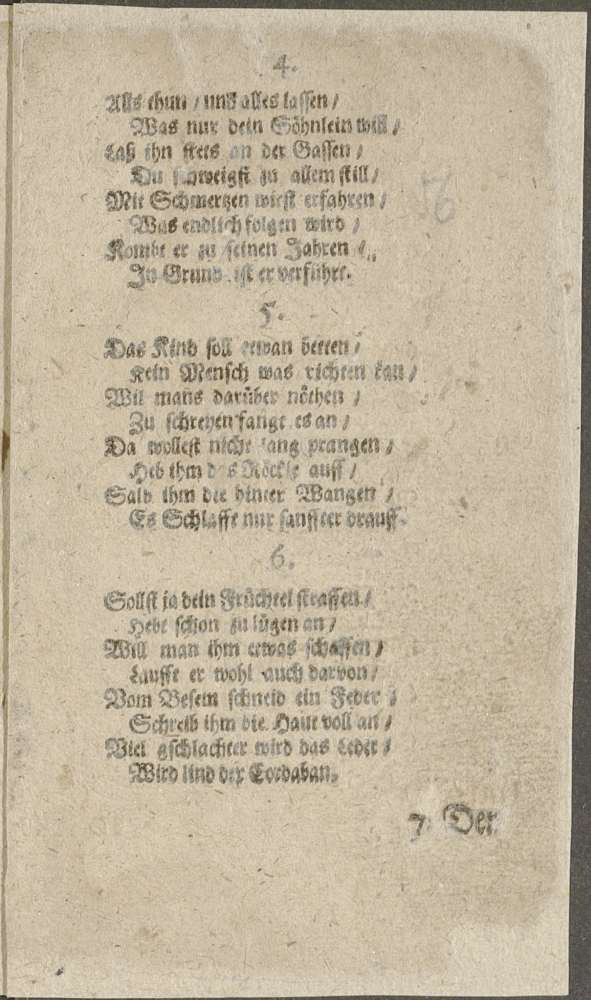 4.
Alls thun / und alles lassen /
Was nur dein Söhnlein will /
Laß ihn stets an der Gassen /
Du schweigst zu allem still /
Mit Schmertzen wirst erfahren /
Was endlich folgen wird /
Kombt er zu seinen Jahren /
In Grund ist er verführt.
5.
Das Kind soll etwan betten /
Kein Mensch was richten kan /
Wil mans darüber nöthen /
Zu schreyen fangt es an /
Da wollest nicht lang prangen /
Heb ihm das Röckle auff /
Salb ihm die hinter Wangen /
Es Schlafft nur sanffter drauff.
6.
Sollst ja dein Früchtel straffen /
Hebt schon zu lügen an /
Will man ihm etwas schaffen /
Laufft er wohl auch darvon /
Vom Besem schneid ein Feder /
Schreib ihm die Haut voll an /
Viel gschlachter wird das Leder /
Wird lind der Cordaban.
7. Der